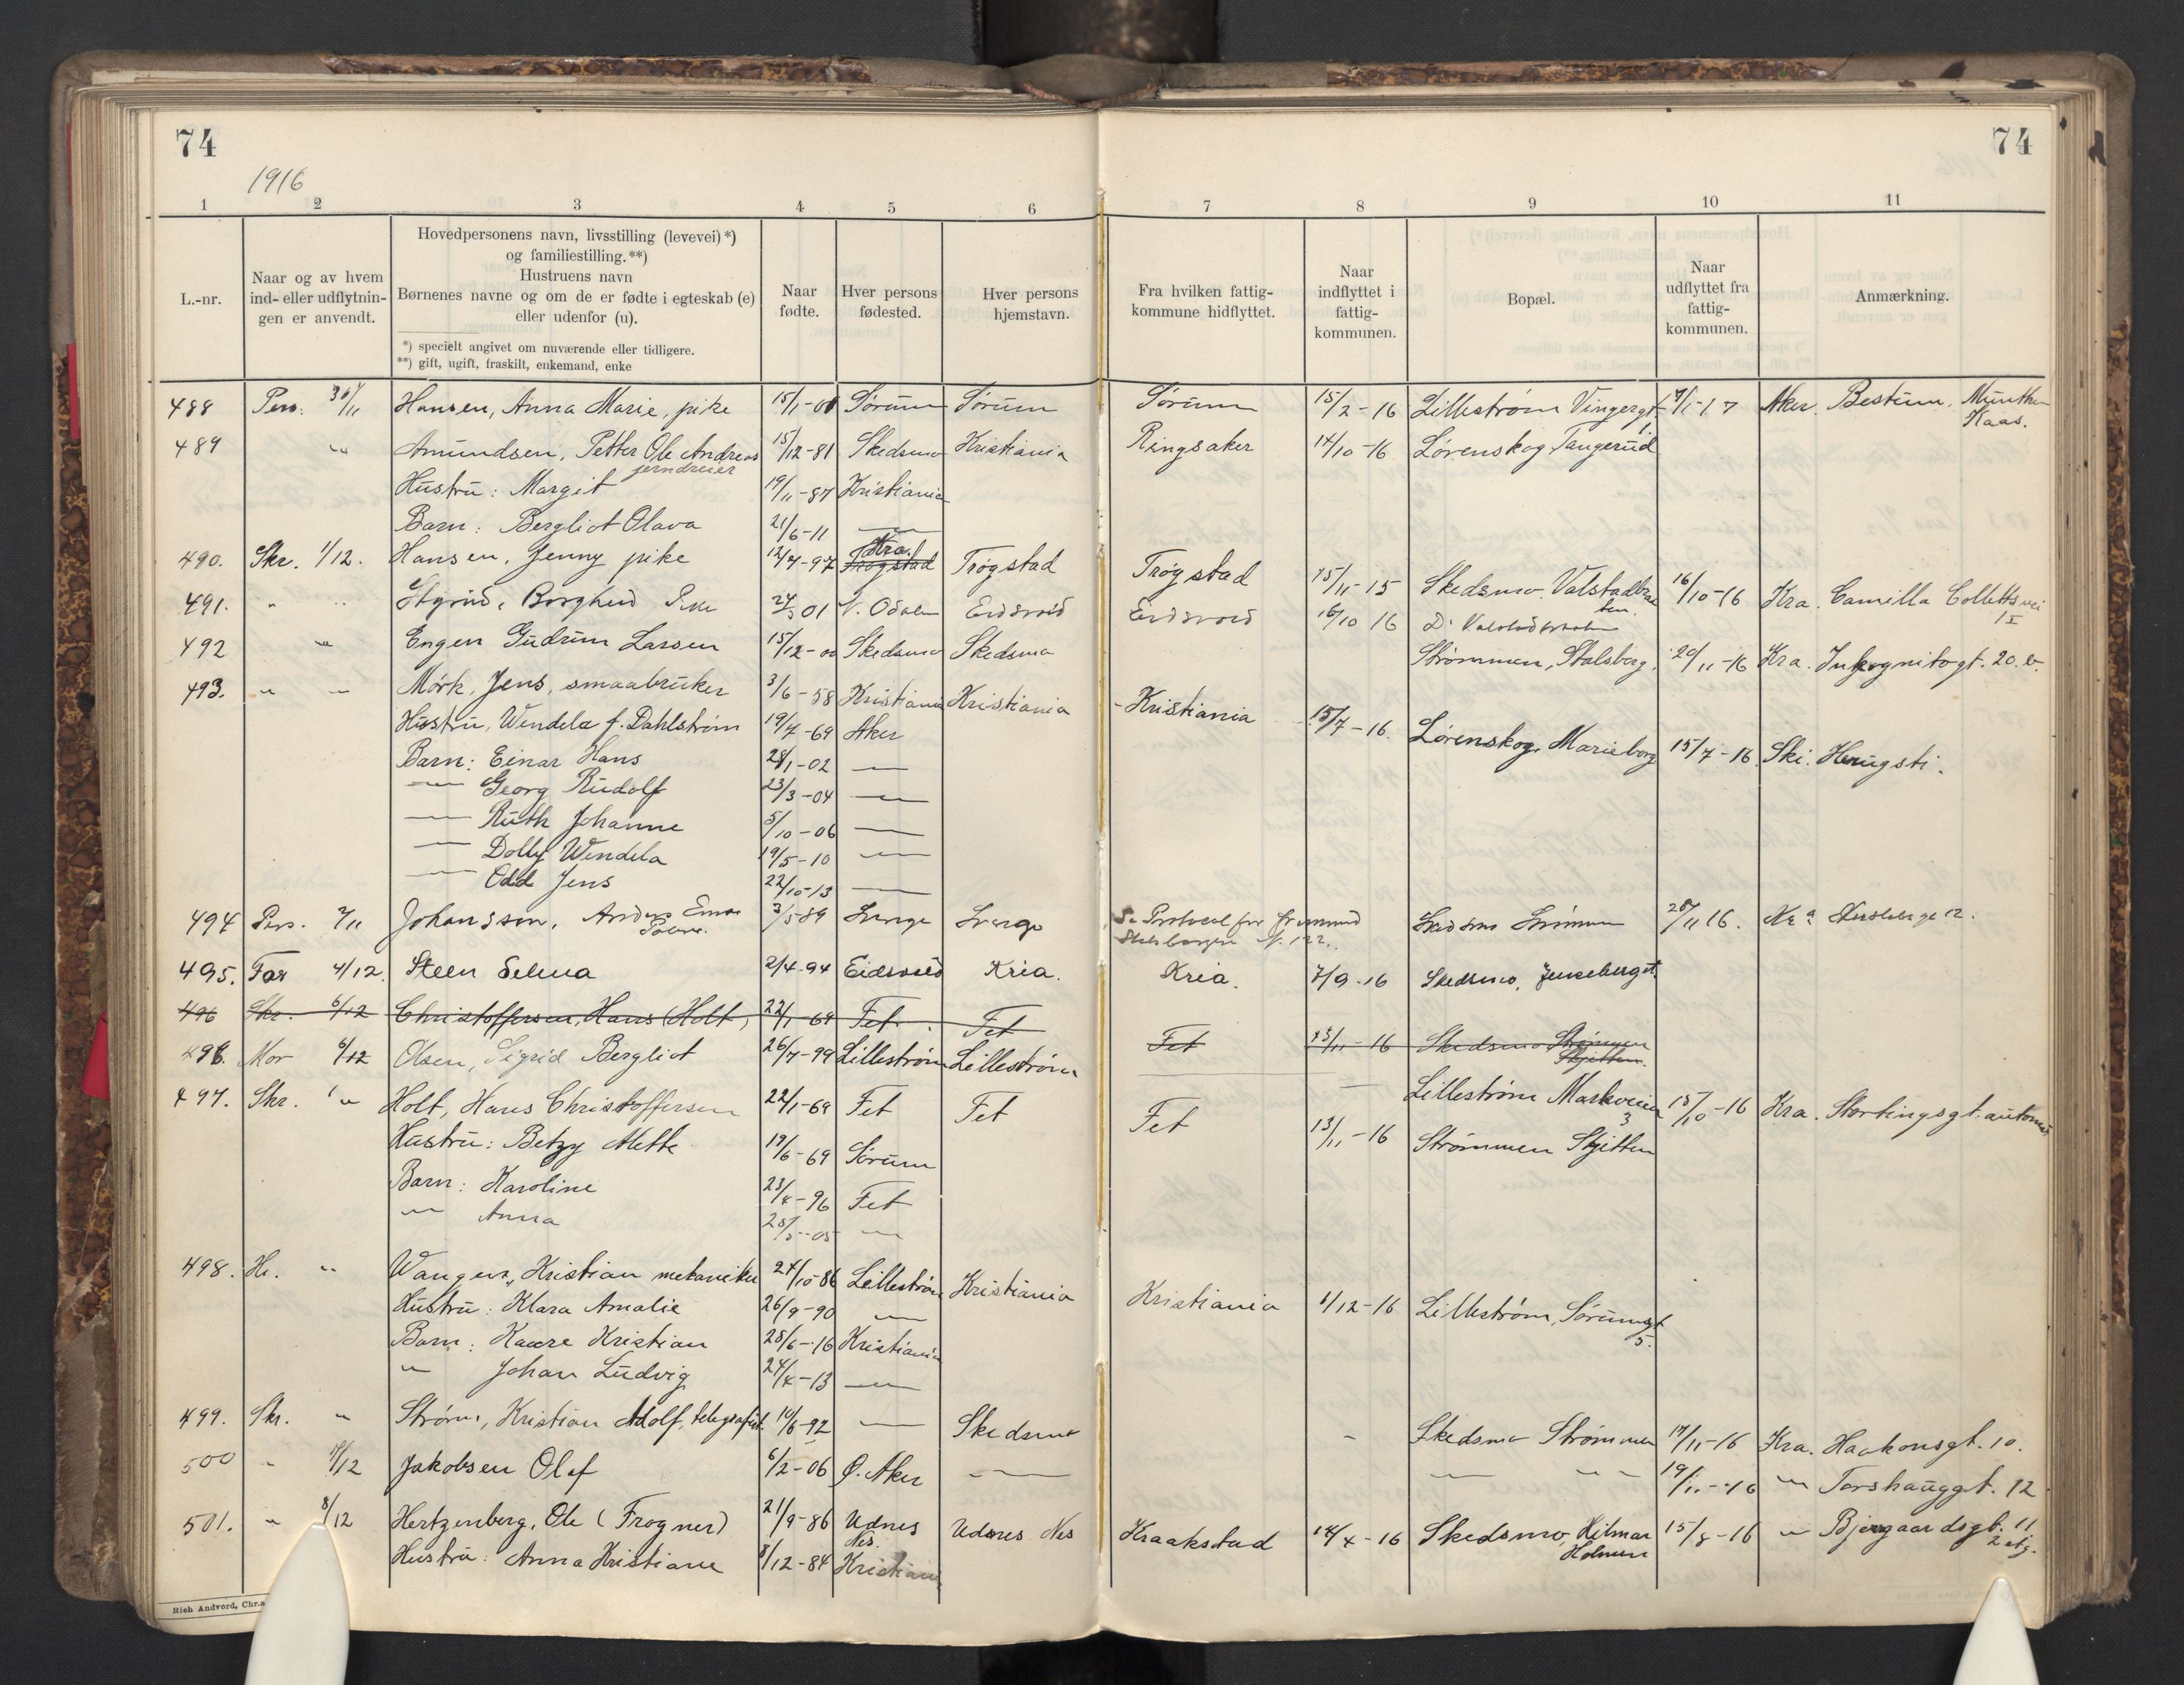 74
74
1916
1 2 3 4 5 6 7 8 9 10 11
L.-nr.
Naar og av hvem
ind- eller udflytnin-
gen er anvendt.
Hovedpersonens navn, livsstilling (levevei)*)
og familiestilling.**)
Hustruens navn
Børnenes navne og om de er fødte i egteskab (e)
eller udenfor (u).
*) specielt angivet om nuværende eller tidligere.
**) gift, ugift, fraskilt, enkemand, enke
Naar
fødte.
Hver persons
fødested.
Hver persons
hjemstavn.
Fra hvilken fattig-
kommune hidflyttet.
Naar
indflyttet i
fattig-
kommunen.
Bopæl.
Naar
udflyttet fra
fattig-
kommunen.
Anmærkning.
488 Pers. 30/11 Hansen, Anna Marie, pike 15/1-00 Sørum Sørum Sørum 15/2-16 Lillestrøm Vingergt. 1 Aker. Bestum, Munthe
Kaas.
489 " Amundsen, Petter Ole Andreas 15/12-81 Skedsmo Kristiania Ringsaker 14/10-16 Lørenskog, Tangerud
jerndreier
Hustru: Margit 19/11-87 Kristiania
Barn: Bergliot Olava 21/6-11 —"—
490. Skr. 1/12. Hansen, Jenny pike 12/4-97 Kra. Trøgstad Trøgstad Trøgstad 15/11-15 Skedsmo, Valstadbra 16/10-16 Kra. Camilla Colletts vei
1 I
491. " " Borghild 01 N. Odalen Eidsvold Eidsvold 16/10 16
492 " Engen Gudrun Larsen 15/12-00 Skedsmo Skedsmo Strømmen, Stalsberg. 20/11-16 Kra. Inkognitogt. 20. b.
493. " " Mørk, Jens, smaabruker 3/6-58 Kristiania Kristiania - Kristiania 15/7-16. Lørenskog, Marieborg 15/7-16. Ski.
Hustru, Wendela f. Dahlstrøm 19/7-69 Aker
Barn: Einar Hans 28/1-02 —"—
—"— Georg Rudolf 23/3-04 —"—
—"— Ruth Johanne 5/10-06 —"—
—"— Dolly Wendela 19/5-10 —"—
—"— Odd Jens 22/10-13 —"—
494 Pers. 7/11 Johansson, 3/5 89 Sverge Sverge Se Protocol for fremmed Skedsmo Strømmen 28/11 16. Kra
N. 122.
495. Far 4/12. Steen Selma 2/4-94 Eidsvold Kria. Kria. 7/9-16 Skedsmo,
496 Skr. 6/12 Christoffersen, Hans (Holt) 22/1-69 Fet Fet Fet 13/11-16 Skedsmo Strømmen
Skjetten.
496. Mor 6/12 Olsen, Sigrid Bergliot 26/7-99 Lillestrøm Lillestrøm — Lillestrøm Markveien 3 15/10-16 Kra. Stortingsgt. automat
497. Skr. " Holt, Hans Christoffersen 22/1-69 Fet Fet Fet 13/11-16 Strømmen Skjetten
Hustru: Betzy Mette 19/6-69 Sørum
Barn: Karoline 23/4-96 Fet
" Anna 28/5-05 —"—
498. Hr. " Wangen, Kristian mekaniker 24/10-86 Lillestrøm Kristiania Kristiania 1/12-16 Lillestrøm, Sørumgt
5.
Hustru: Klara Amalie 26/9-90 —"—
Barn: Kaare Kristian 28/6-16 Kristiania
" Johan Ludvig 24/4-13 —"—
499. Skr. " Strøm, Kristian Adolf, telegrafist. 10/6-92 —"— Skedsmo - Skedsmo Strømmen 17/11-16 Kra. Haakonsgt. 10.
500 " Jakobsen Olaf 6/2-06 Ø. Aker —"— —"— " " 19/11-16 " Torshauggt. 12
501. " 8/12 Hertzenberg, Ole (Frogner) 21/9-86 Udnes Nes. Udnes Nes Kraakstad 14/4-16 Skedsmo, Hilmar Holmen 15/8-16 " Bjergaardsgt. 11
2 etg.
Hustru: Anna Kristiane 8/12-84 Kristiania